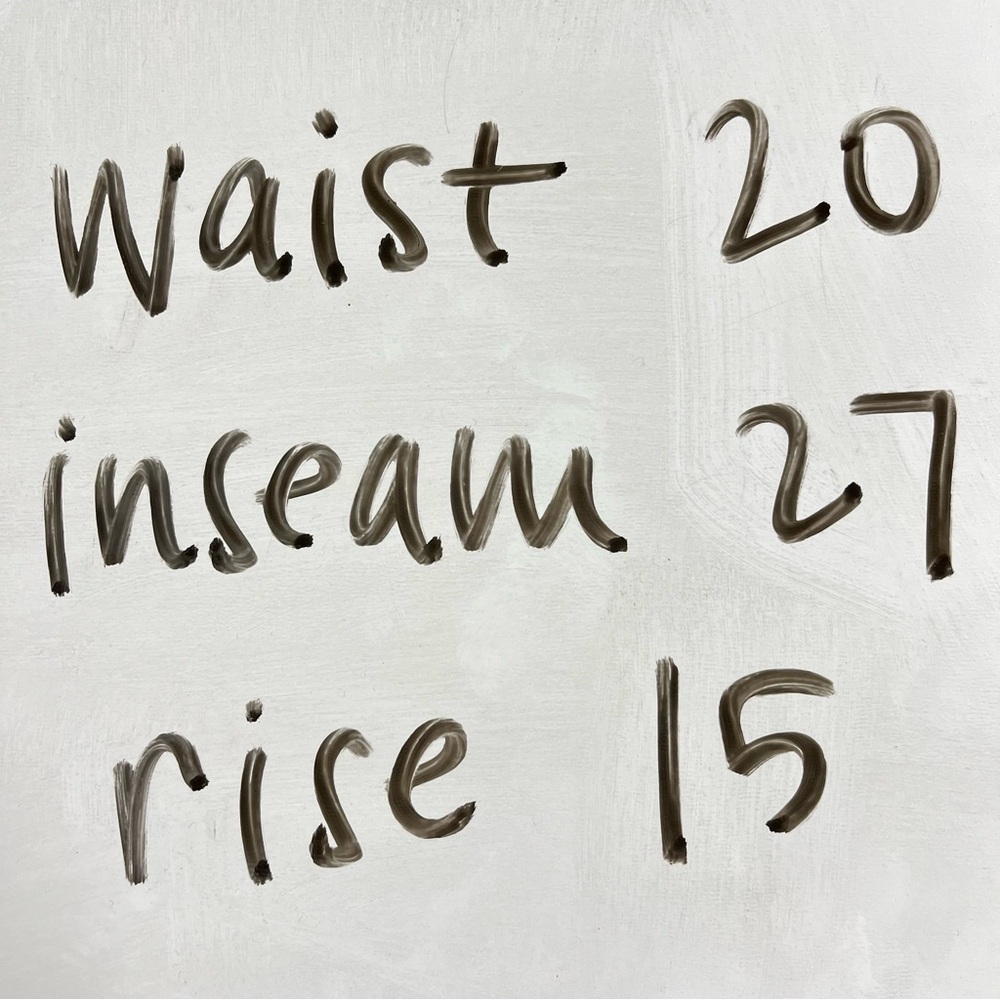 waist 20
inseam 27
rise 15